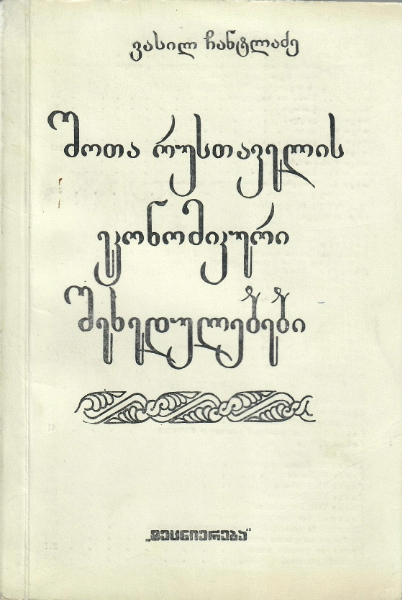 ვასილ ჩანტლაძე
შოთა რუსთაველის
ეკონომიკური
შეხედულებები
„მეცნიერება“